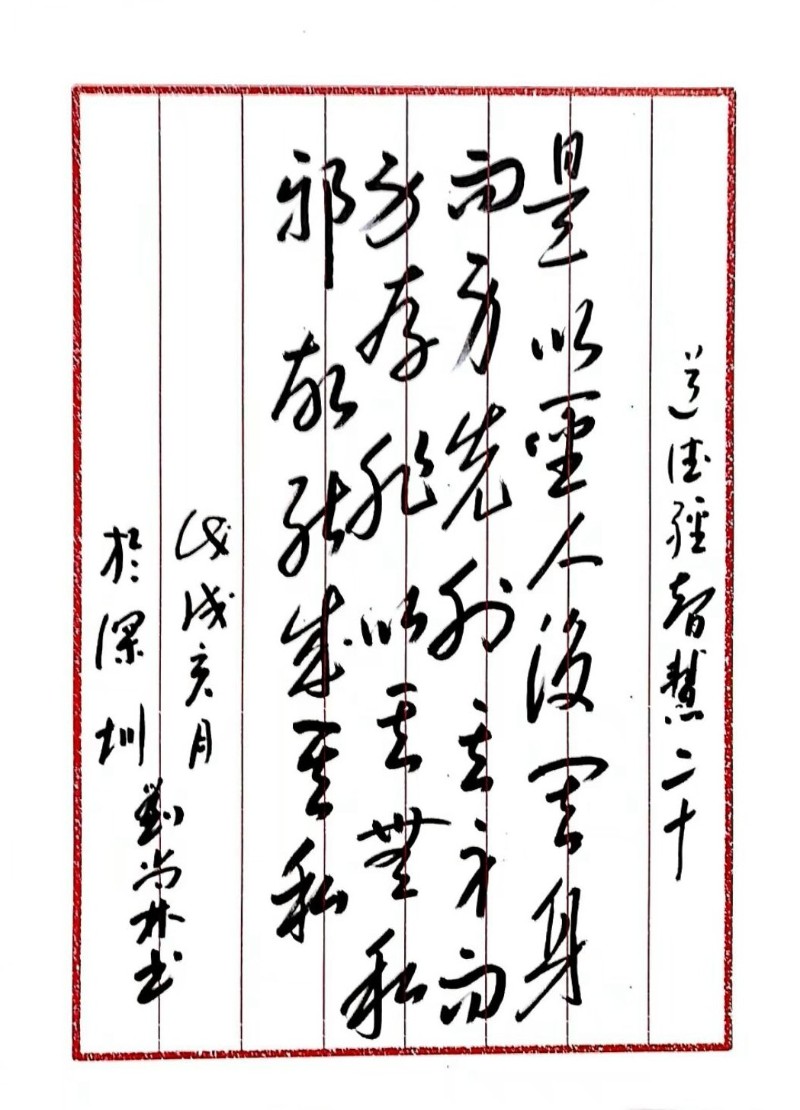 道德經智慧二十
是以聖人後其身
而身先外其身而
身存非以其無私
邪故能成其私
戊戌亥月
於深圳
劉尚林书